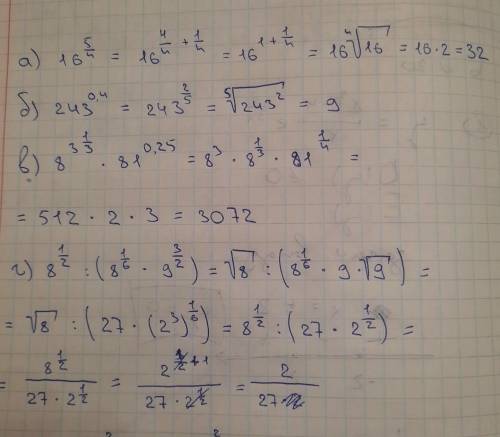 а) 16^(5/4) = 16^(4/4 + 1/4) = 16^(1 + 1/4) = 16 ⁴√16 = 16 · 2 = 32
б) 243^(0,4) = 243^(2/5) = ⁵√(243²) = 9
в) 8^(3 1/3) · 81^(0,25) = 8³ · 8^(1/3) · 81^(1/4) =
= 512 · 2 · 3 = 3072
г) 8^(1/2) : (8^(1/6) · 9^(3/2)) = √8 : (8^(1/6) · 9 · √9) =
= √8 : (27 · (2³)^(1/6)) = 8^(1/2) : (27 · 2^(1/2)) =
= 8^(1/2) / (27 · 2^(1/2)) = 2^(1/2 + 1) / (27 · 2^(1/2)) = 2 / 27